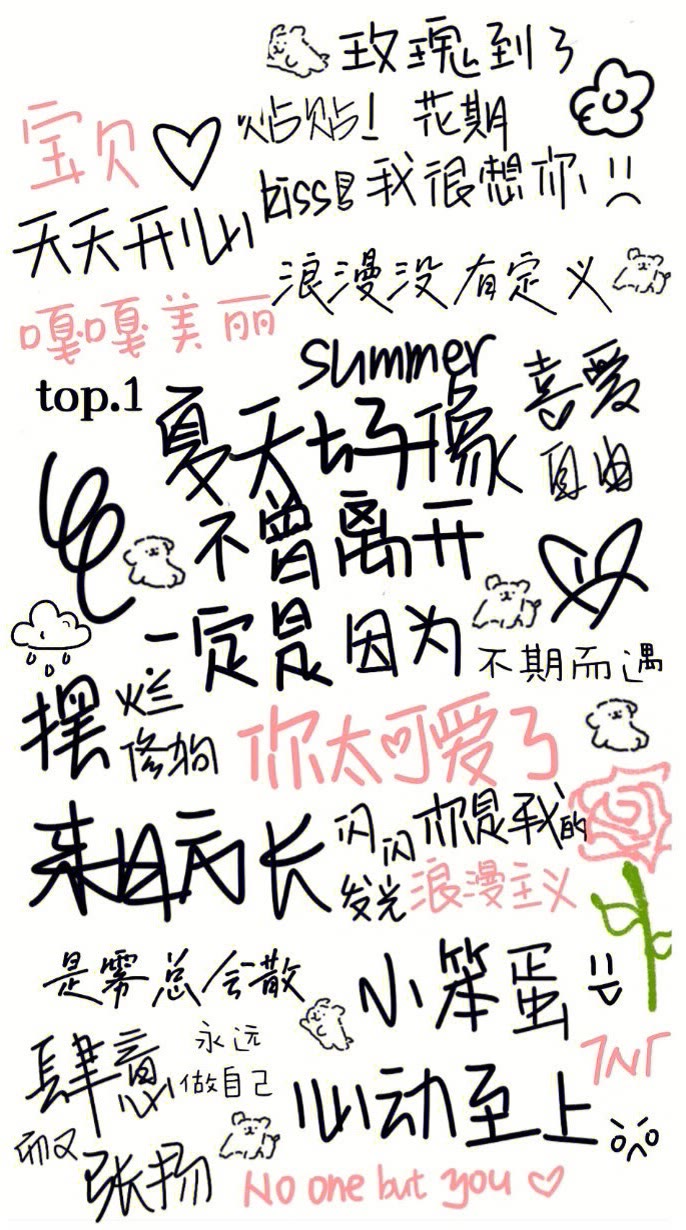 玫瑰到了
宝贝
贴贴！ 花期
kiss 我很想你
天天开心
浪漫没有定义
嘎嘎美丽
summer
top.1
喜爱
自由
夏天好像
不曾离开
一定是因为
不期而遇
摆烂
修狗
你太可爱了
来日方长
闪闪发光
你是我的
浪漫主义
是雾总会散
小笨蛋
肆意
永远
做自己
TNT
心动至上
而又
张扬
No one but you